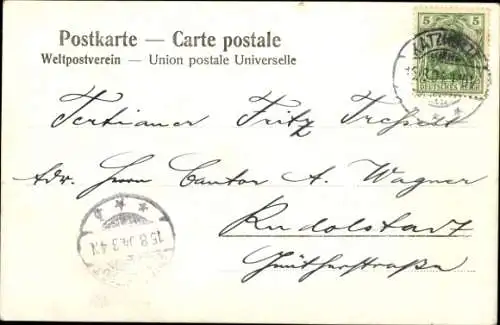 Postkarte — Carte postale
Weltpostverein — Union postale Universelle
5 5
DEUTSCHES REICH
Tertianer Fritz
Adr. Herrn Cantor A. Wagner
Rudolstadt
Güntherstraße
15.8.04. 3-4N